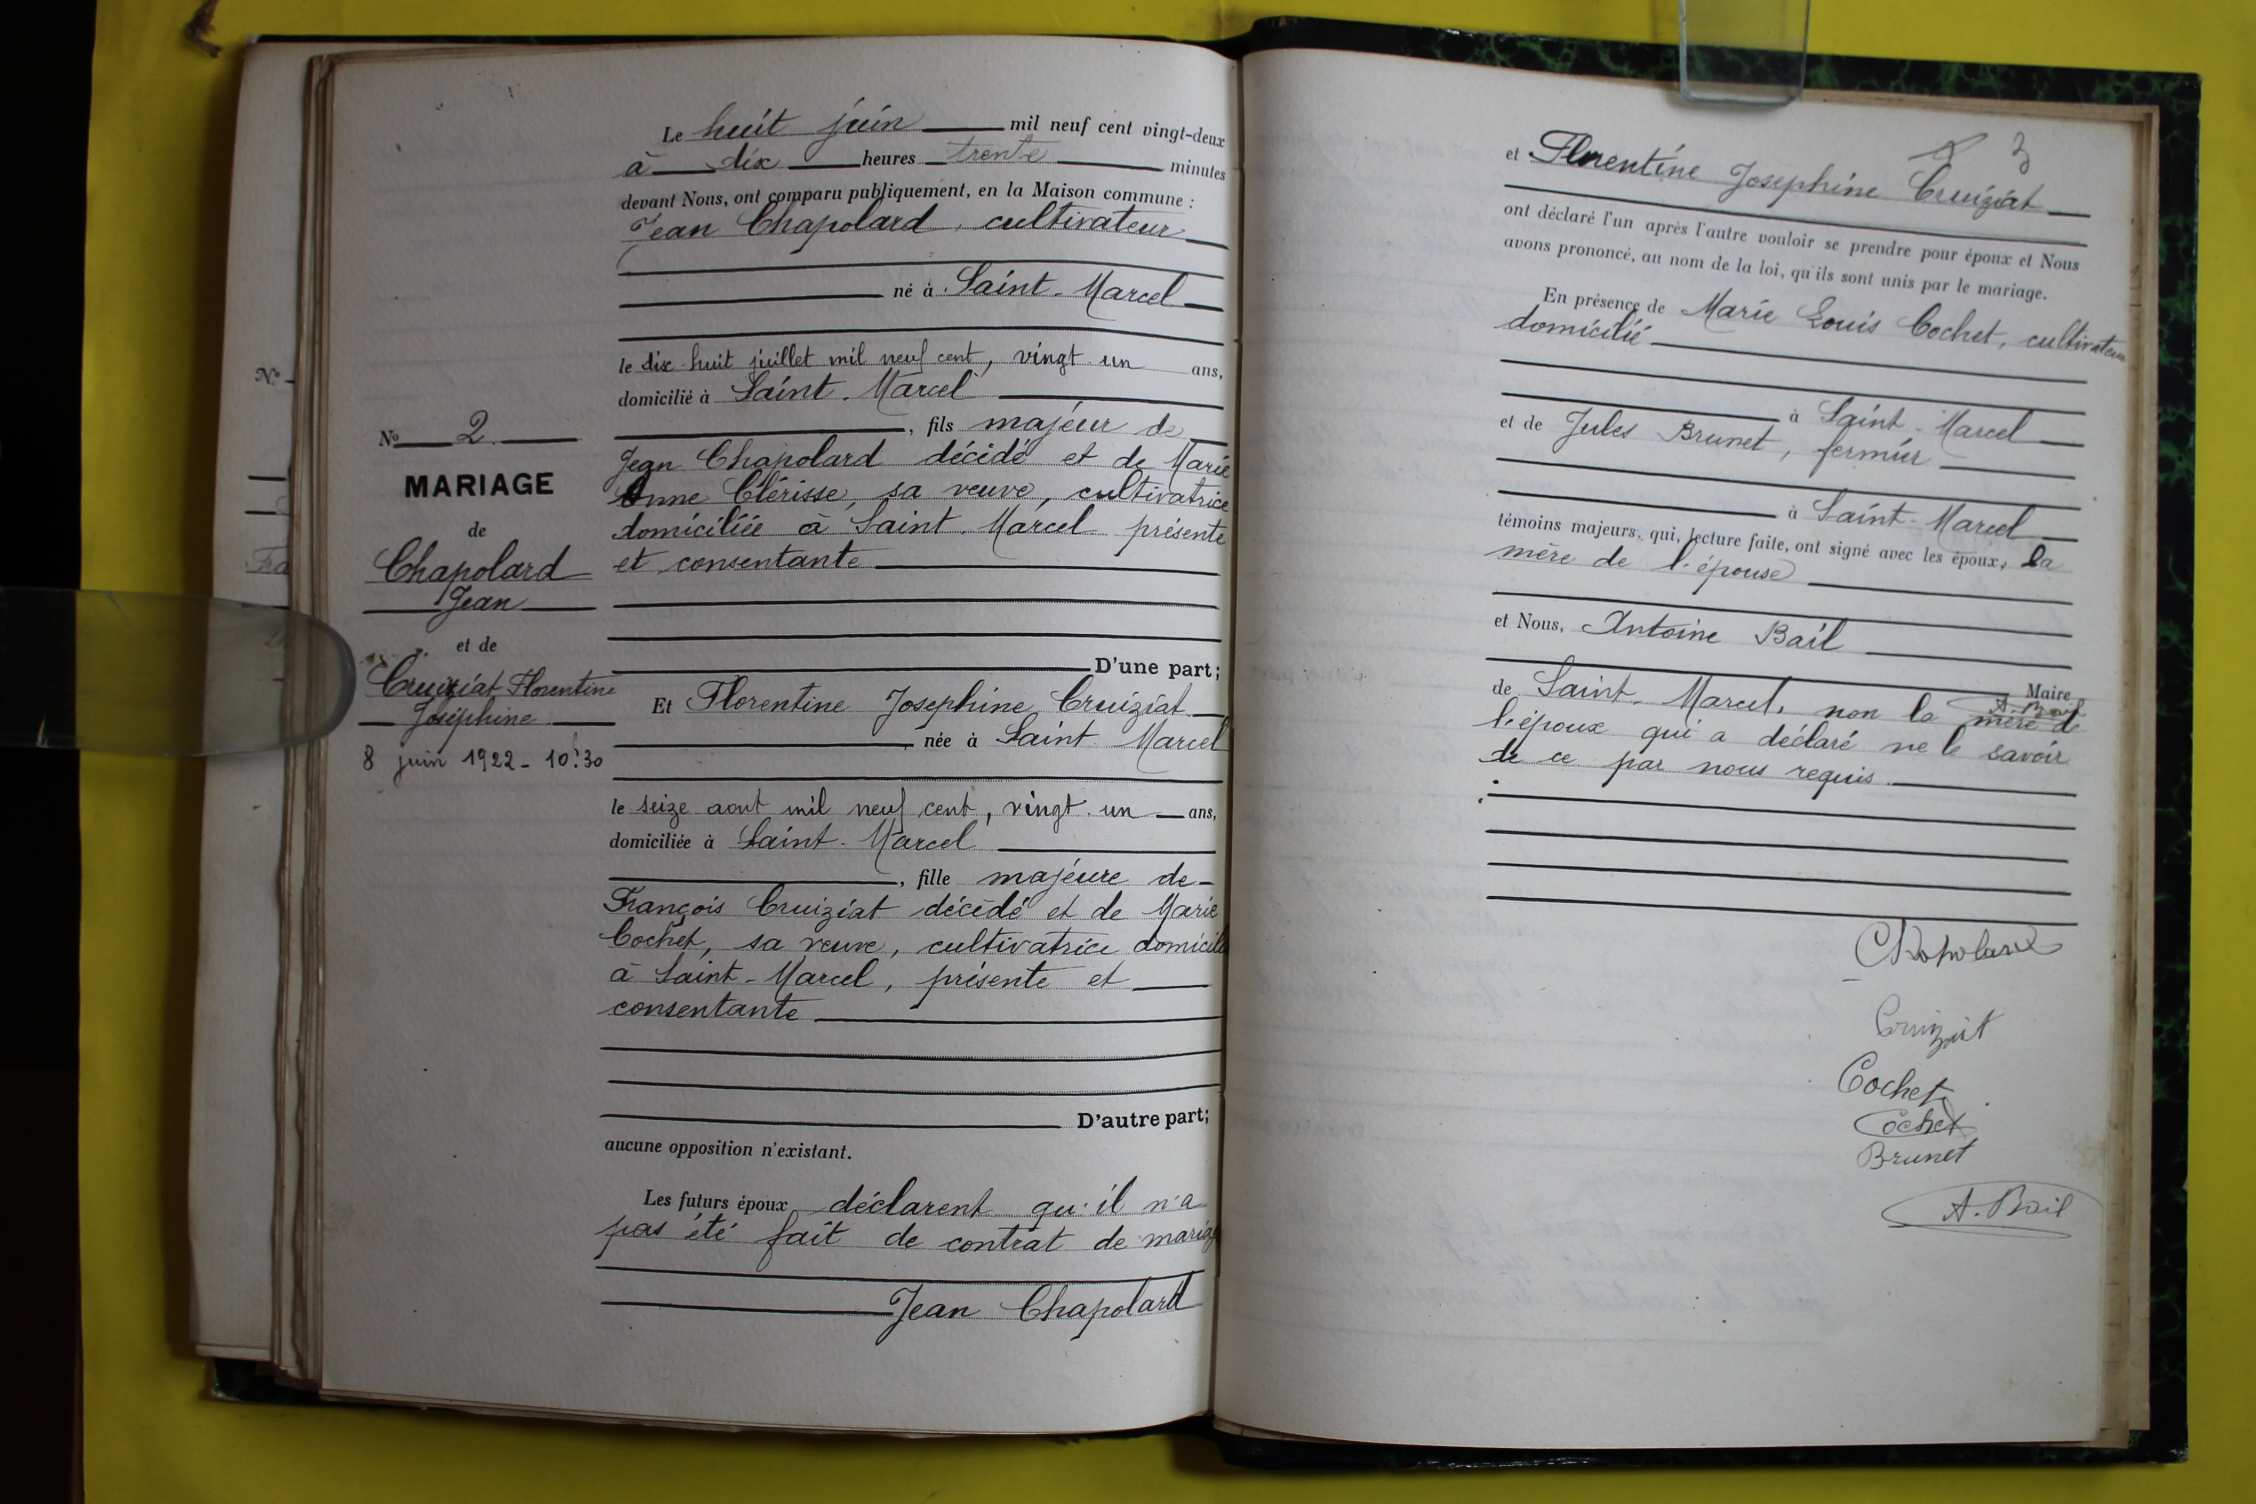 N°
Fra
N° 2
MARIAGE
de
Chapolard
Jean
et de
Cruiziat Florentine
Joséphine
8 juin 1922 - 10h30
Le huit juin mil neuf cent vingt-deux
à dix heures trente minutes
devant Nous, ont comparu publiquement, en la Maison commune :
Jean Chapolard, cultivateur
né à Saint-Marcel
le dix-huit juillet mil neuf cent, vingt-un ans,
domicilié à Saint-Marcel
, fils majeur de
Jean Chapolard décidé et de Marie
Anne Clérisse, sa veuve, cultivatrice
domiciliée à Saint-Marcel présente
et consentante
D'une part;
Et Florentine Josephine Cruiziat
, née à Saint Marcel
le seize aout mil neuf cent, vingt-un ans,
domiciliée à Saint-Marcel
, fille majeure de
François Cruiziat décédé et de Marie
Cochet, sa veuve, cultivatrice domicilié
à Saint-Marcel, présente et
consentante
D'autre part;
aucune opposition n'existant.
Les futurs époux déclarent qu'il n'a
pas été fait de contrat de mariage
Jean Chapolard
3
et Florentine Josephine Cruiziat
ont déclaré l'un après l'autre vouloir se prendre pour époux et Nous
avons prononcé, au nom de la loi, qu'ils sont unis par le mariage.
En présence de Marie Louis Cochet, cultivateur
domicilié
à Saint-Marcel
et de Jules Brunet, fermier
à Saint-Marcel
témoins majeurs, qui, lecture faite, ont signé avec les époux, la
mère de l'épouse
et Nous, Antoine Bail
Maire
A. Bail
de Saint-Marcel, non la mère de
l'époux qui a déclaré ne le savoir
de ce par nous requis.
Chapolard
Cruiziat
Cochet
Cochet
Brunet
A. Bail